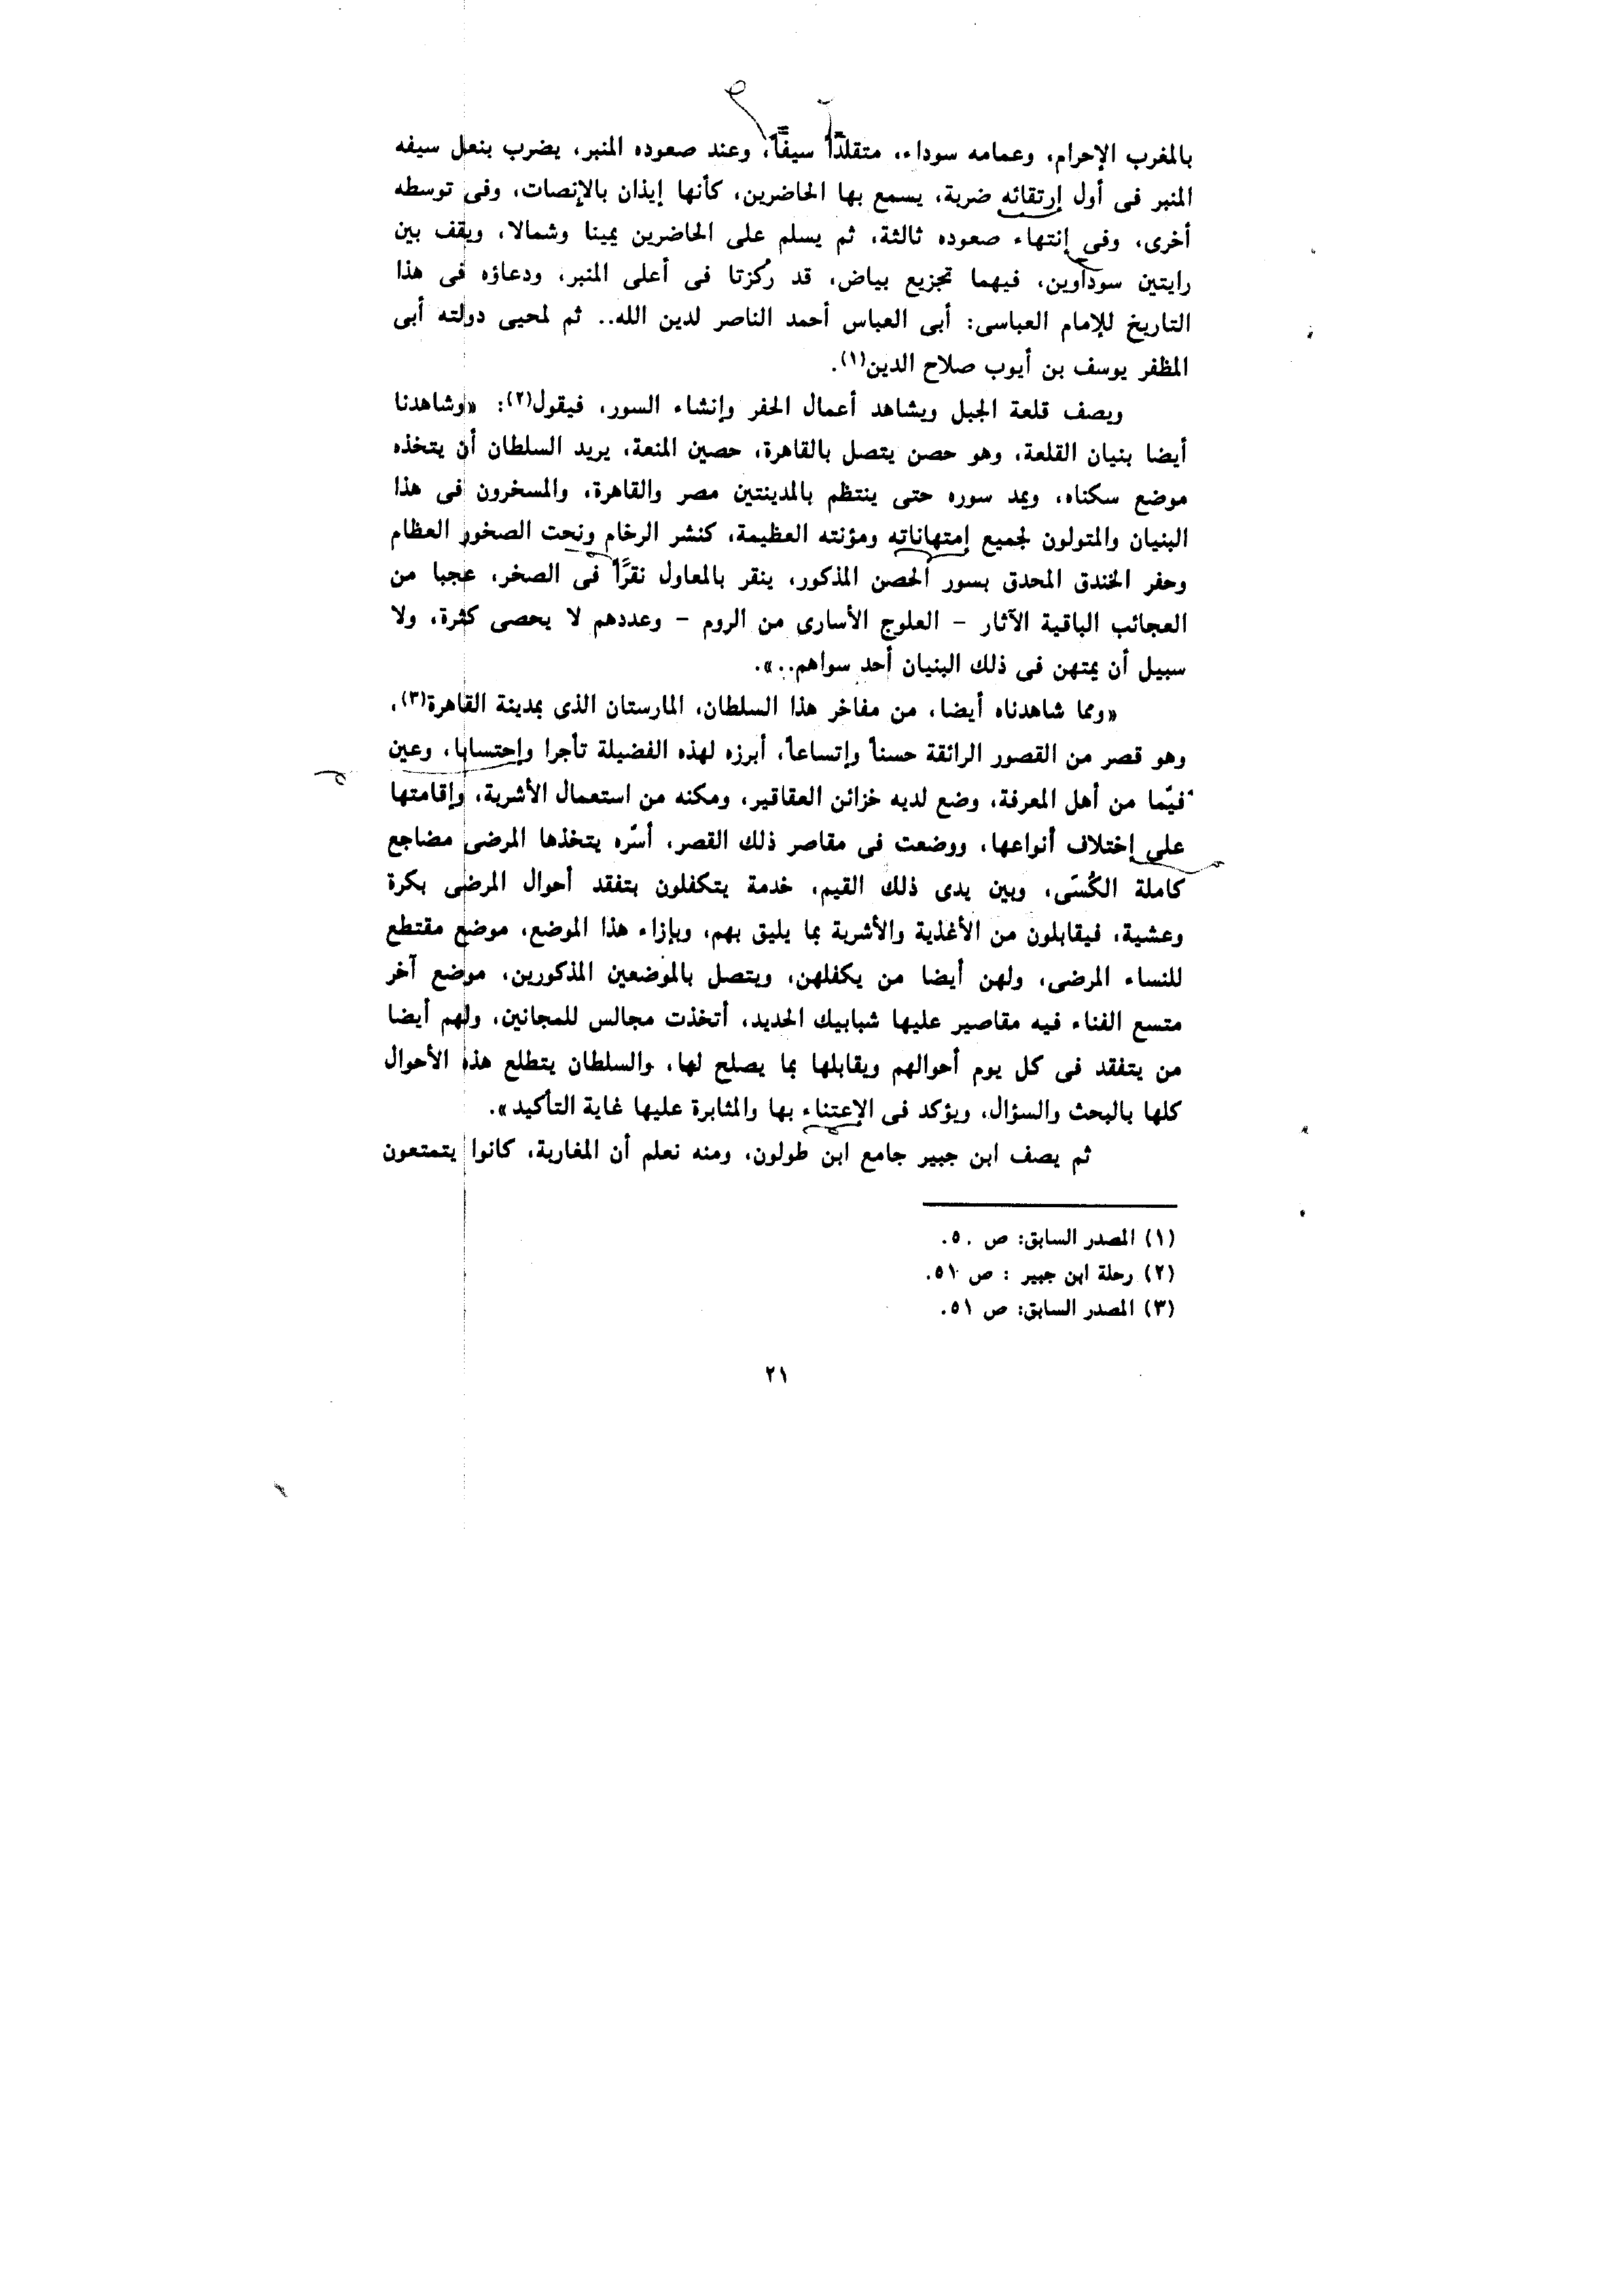 بالمغرب الإحرام، وعمامه سوداء، متقلدًا سيفًا، وعند صعوده المنبر، يضرب بنعل سيفه
المنبر فى أول إرتقائه ضربة، يسمع بها الحاضرين، كأنها إيذان بالإنصات، وفى توسطه
أخرى، وفى إنتهاء صعوده ثالثة، ثم يسلم على الحاضرين يمينا وشمالا، ويقف بين
رايتين سوداوين، فيهما تجزيع بياض، قد رُكزتا فى أعلى المنبر، ودعاؤه فى هذا
التاريخ للإمام العباسى: أبى العباس أحمد الناصر لدين الله.. ثم لمحيى دولته أبى
المظفر يوسف بن أيوب صلاح الدين(١).
ويصف قلعة الجبل ويشاهد أعمال الحفر وإنشاء السور، فيقول(٢): «وشاهدنا
أيضا بنيان القلعة، وهو حصن يتصل بالقاهرة، حصين المنعة، يريد السلطان أن يتخذه
موضع سكناه، ويمد سوره حتى ينتظم بالمدينتين مصر والقاهرة، والمسخرون فى هذا
البنيان والمتولون لجميع إمتهاناته ومؤنته العظيمة، كنشر الرخام ونحت الصخور العظام
وحفر الخندق المحدق بسور الحصن المذكور، ينقر بالمعاول نقرًا فى الصخر، عجبا من
العجائب الباقية الآثار – العلوج الأسارى من الروم – وعددهم لا يحصى كثرة، ولا
سبيل أن يمتهن فى ذلك البنيان أحد سواهم..».
«ومما شاهدناه أيضا، من مفاخر هذا السلطان، المارستان الذى بمدينة القاهرة(٣)،
وهو قصر من القصور الرائقة حسناً وإتساعاً، أبرزه لهذه الفضيلة تأجرا وإحتسابا، وعين
فيّما من أهل المعرفة، وضع لديه خزائن العقاقير، ومكنه من استعمال الأشربة، وإقامتها
على إختلاف أنواعها، ووضعت فى مقاصر ذلك القصر، أسّره يتخذها المرضى مضاجع
كاملة الكُسَى، وبين يدى ذلك القيم، خدمة يتكفلون بتفقد أحوال المرضى بكرة
وعشية، فيقابلون من الأغذية والأشربة بما يليق بهم، وبإزاء هذا الموضع، موضع مقتطع
للنساء المرضى، ولهن أيضا من يكفلهن، ويتصل بالموضعين المذكورين، موضع آخر
متسع الفناء فيه مقاصير عليها شبابيك الحديد، أتخذت مجالس للمجانين، ولهم أيضا
من يتفقد فى كل يوم أحوالهم ويقابلها بما يصلح لها، والسلطان يتطلع هذه الأحوال
كلها بالبحث والسؤال، ويؤكد فى الإعتناء بها والمثابرة عليها غاية التأكيد».
ثم يصف ابن جبير جامع ابن طولون، ومنه نعلم أن المغاربة، كانوا يتمتعون
(١) المصدر السابق: ص ٥٠.
(٢) رحلة ابن جبير : ص ٥١.
(٣) المصدر السابق: ص ٥١.
٢١